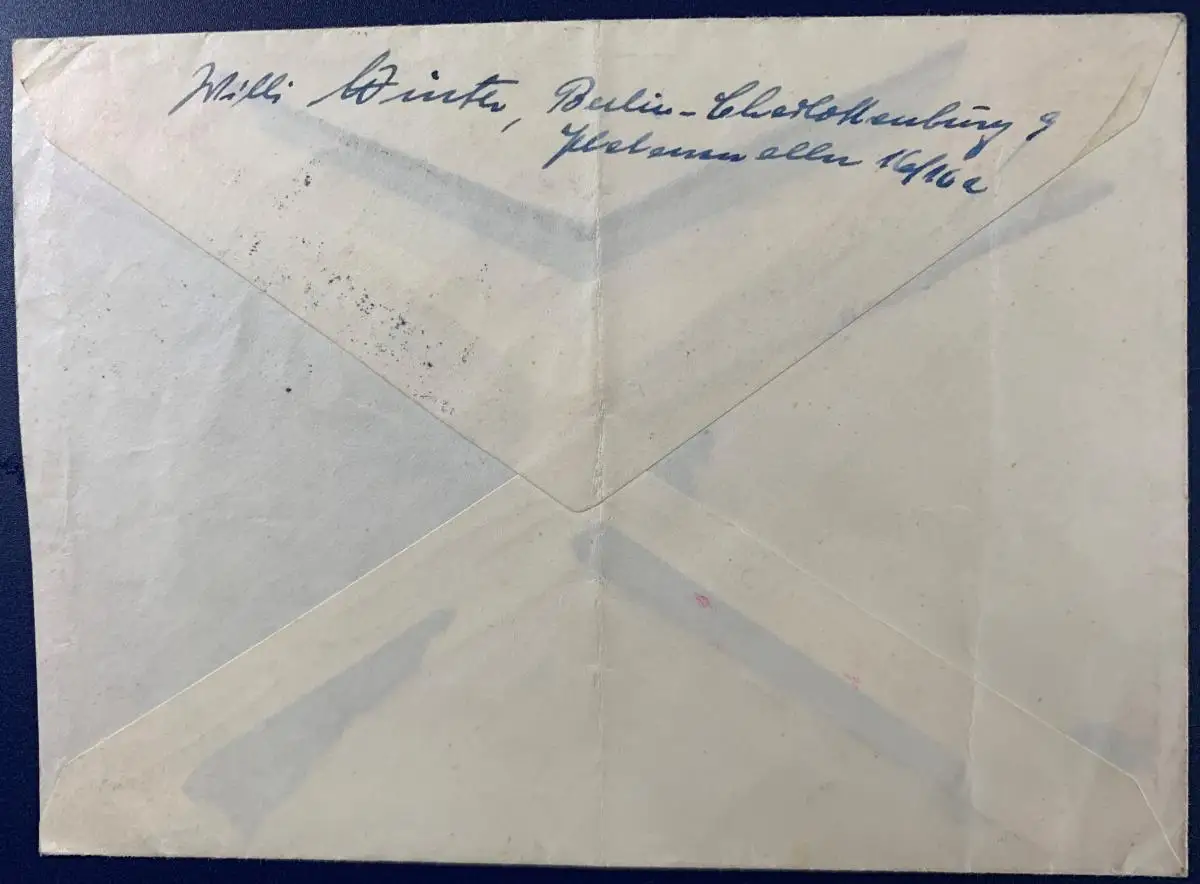 Willi Winter, Berlin-Charlottenburg 9
Platanenallee 16/16a